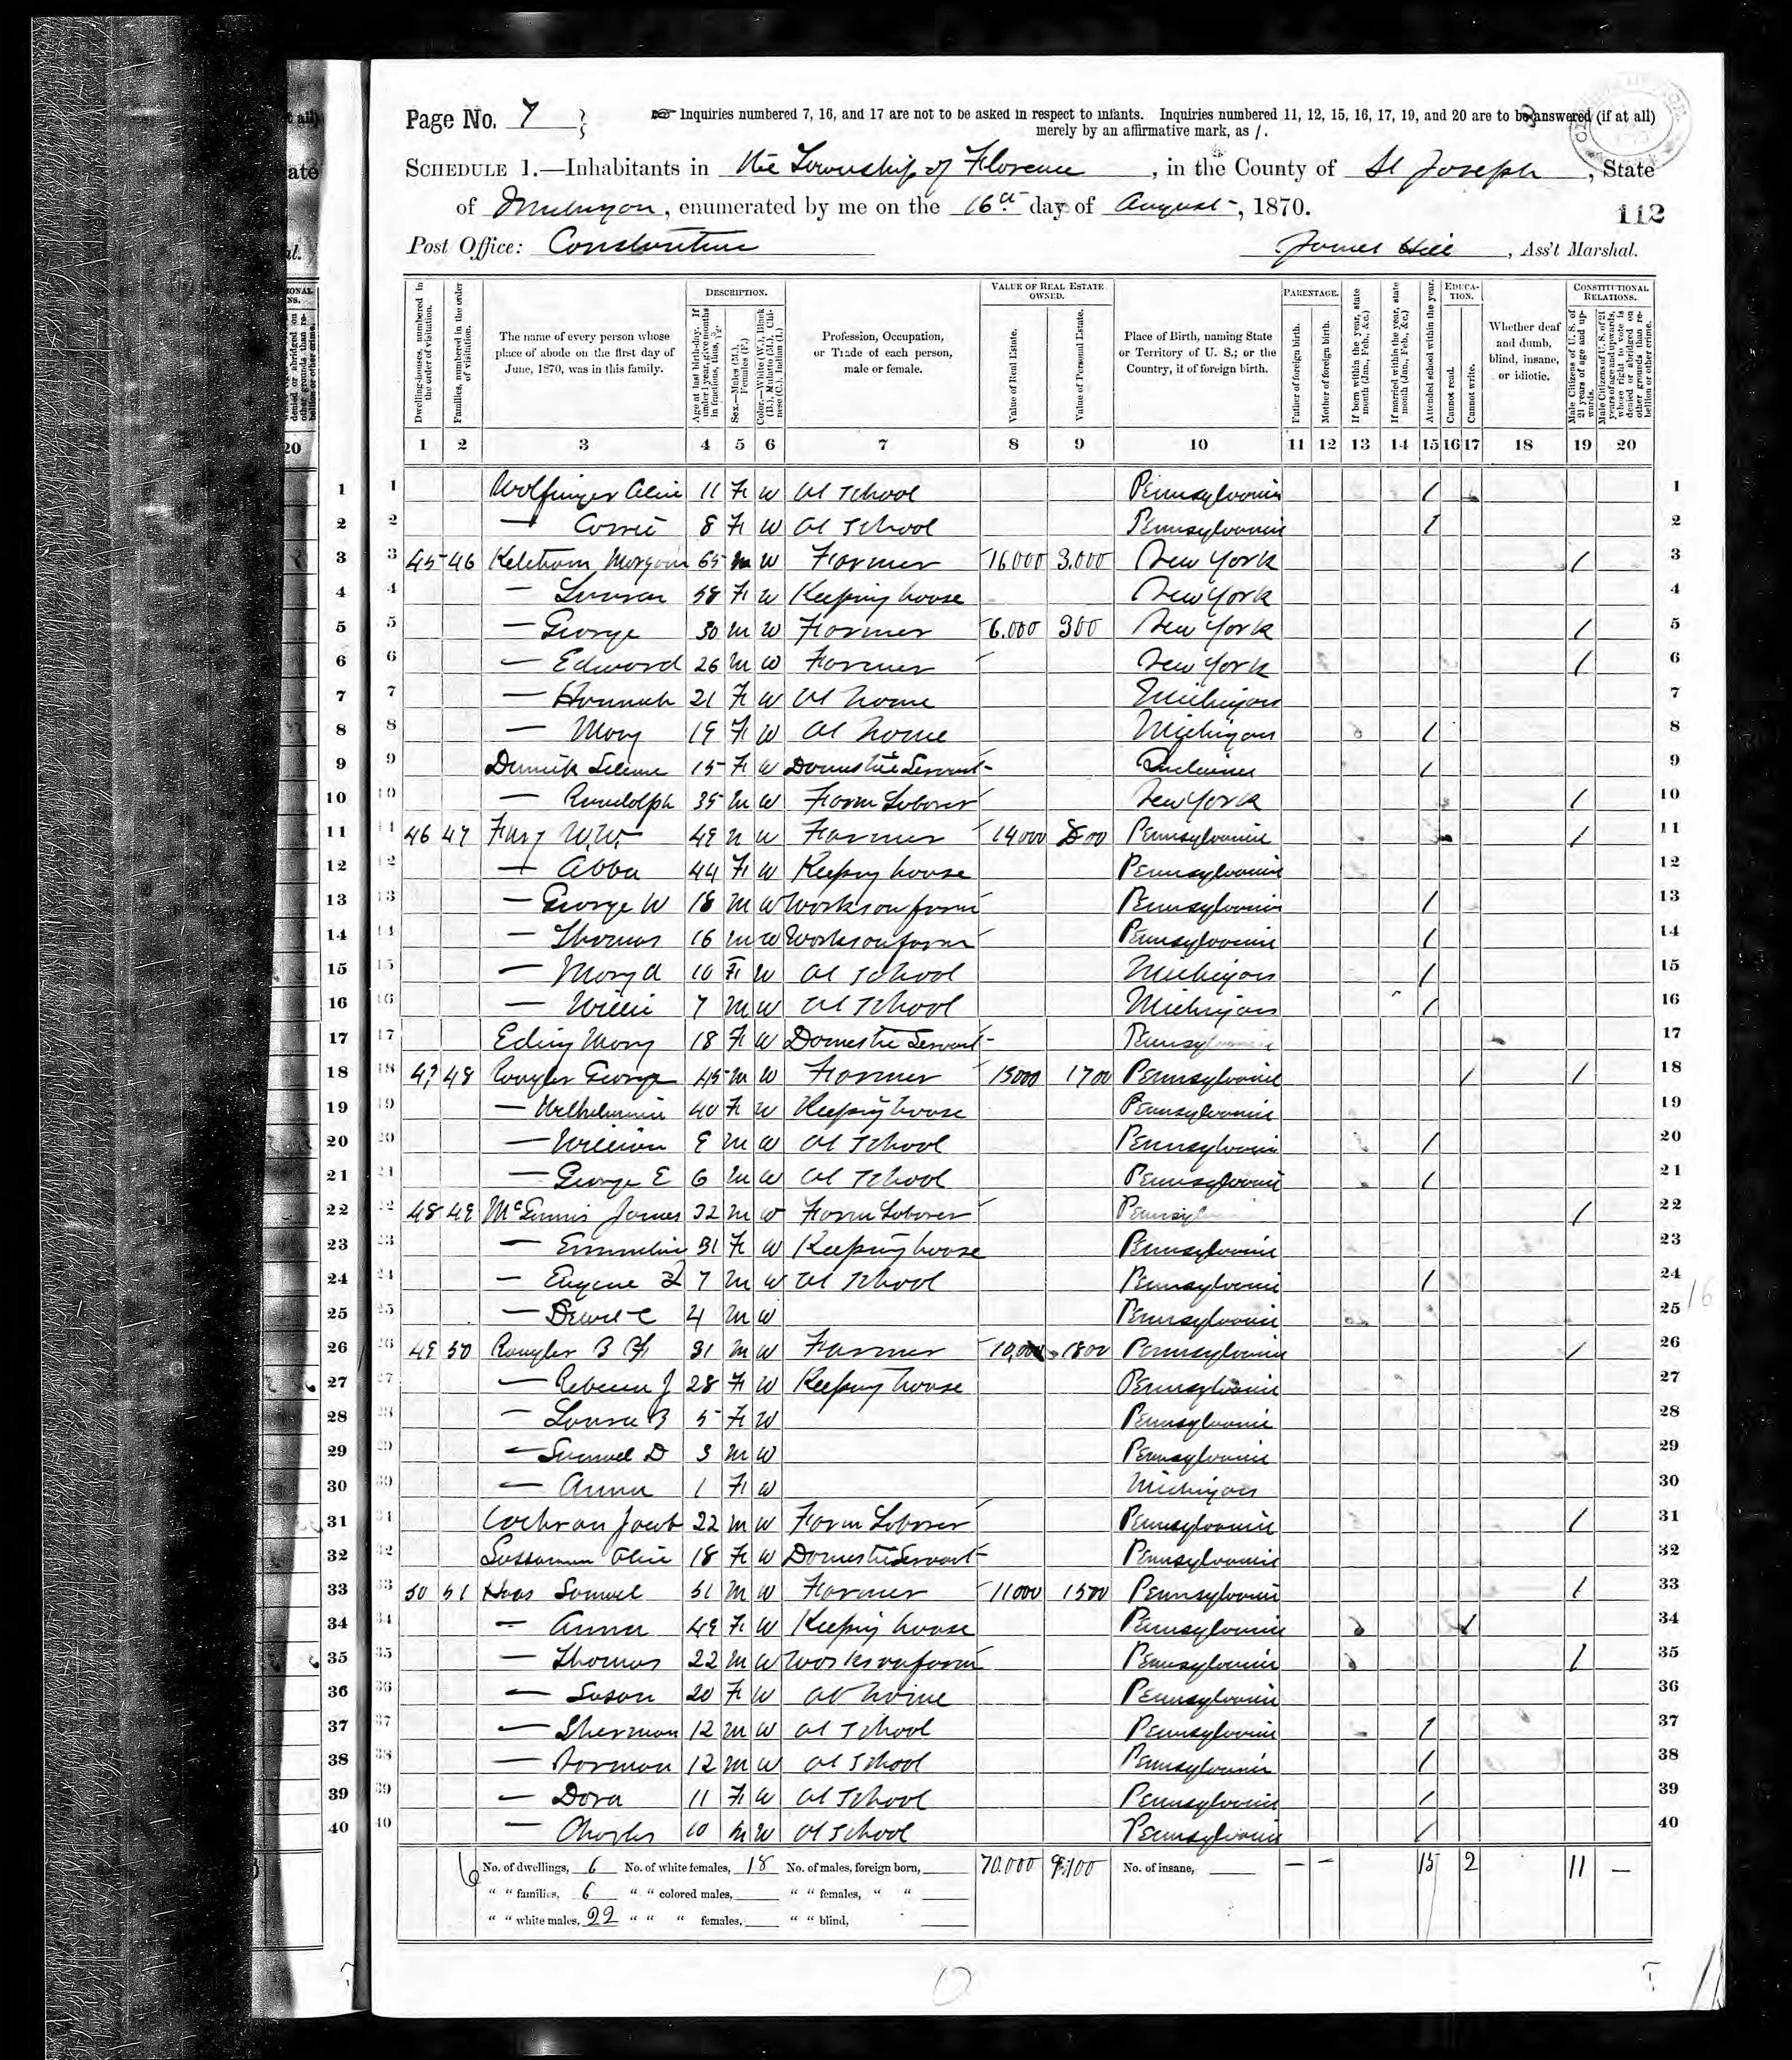 Page No. 7
Inquiries numbered 7, 16, and 17 are not to be asked in respect to infants. Inquiries numbered 11, 12, 15, 16, 17, 19, and 20 are to be answered (if at all)
merely by an affirmative mark, as /.
SCHEDULE 1.—Inhabitants in the Township of Florence, in the County of St Joseph, State
of Michigan, enumerated by me on the 16th day of August, 1870.
112
Post Office: Constantine
James Hill, Ass't Marshal.
Dwelling-houses, numbered in the order of visitation.
Families, numbered in the order of visitation.
The name of every person whose place of abode on the first day of June, 1870, was in this family.
DESCRIPTION.
Age at last birth-day. If under 1 year, give months in fractions, thus, 3/12.
Sex.—Males (M.), Females (F.)
Color.—White (W.), Black (B.), Mulatto (M.), Chinese (C.), Indian (I.)
Profession, Occupation, or Trade of each person, male or female.
VALUE OF REAL ESTATE OWNED.
Value of Real Estate.
Value of Personal Estate.
Place of Birth, naming State or Territory of U. S.; or the Country, if of foreign birth.
PARENTAGE.
Father of foreign birth.
Mother of foreign birth.
If born within the year, state month (Jan., Feb., &c.)
If married within the year, state month (Jan., Feb., &c.)
Attended school within the year.
EDUCATION.
Cannot read.
Cannot write.
Whether deaf and dumb, blind, insane, or idiotic.
CONSTITUTIONAL RELATIONS.
Male Citizens of U. S. of 21 years of age and upwards.
Male Citizens of U. S. of 21 years of age and upwards, where right to vote is denied or abridged on other grounds than rebellion or other crime.
1 2 3 4 5 6 7 8 9 10 11 12 13 14 15 16 17 18 19 20
1 Wolfinger Alice 11 F W At School Pennsylvania / 1
2 — Corrie 8 F W At School Pennsylvania / 2
3 45 46 Ketcham Morgan 65 M W Farmer 16000 3.000 New York / 3
4 — 58 F W Keeping house New York 4
5 — George 30 M W Farmer 6.000 300 New York / 5
6 — Edward 26 M W Farmer New York / 6
7 — Hannah 21 F W At home Michigan 7
8 — Mary 19 F W At home Michigan / 8
9 15 F W Domestic Servant Indiana / 9
10 — Randolph 35 M W Farm Laborer New York / 10
11 46 47 W.W. 49 M W Farmer 14000 800 Pennsylvania / 11
12 — Abba 44 F W Keeping house Pennsylvania 12
13 — George W 18 M W Works on farm Pennsylvania / 13
14 — Thomas 16 M W Works on farm Pennsylvania / 14
15 — Mary A 10 F W At School Michigan / 15
16 — Willie 7 M W At School Michigan / 16
17 Mary 18 F W Domestic Servant Pennsylvania 17
18 47 48 George 45 M W Farmer 13000 1700 Pennsylvania / / 18
19 — Wilhelmina 40 F W Keeping house Pennsylvania 19
20 — William 8 M W At School Pennsylvania / 20
21 — George E 6 M W At School Pennsylvania / 21
22 48 49 McGinnis James 32 M W Farm Laborer Pennsylvania / 22
23 — Emmeline 31 F W Keeping house Pennsylvania 23
24 — Eugene 7 M W At School Pennsylvania / 24
25 — C 4 M W Pennsylvania 25
26 49 50 B F 31 M W Farmer 10,000 1800 Pennsylvania / 26
27 — Rebecca J 28 F W Keeping house Pennsylvania 27
28 — Laura B 5 F W Pennsylvania 28
29 — Samuel D 3 M W Pennsylvania 29
30 — Anna 1 F W Michigan 30
31 Cochran Jacob 22 M W Farm Laborer Pennsylvania / 31
32 Sassaman Alice 18 F W Domestic Servant Pennsylvania 32
33 50 51 Haas Samuel 51 M W Farmer 11000 1500 Pennsylvania / 33
34 — Anna 49 F W Keeping house Pennsylvania / 34
35 — Thomas 22 M W Works on farm Pennsylvania / 35
36 — Susan 20 F W At home Pennsylvania 36
37 — Sherman 12 M W At School Pennsylvania / 37
38 — Norman 12 M W At School Pennsylvania / 38
39 — Dora 11 F W At School Pennsylvania / 39
40 — Charles 10 M W At School Pennsylvania / 40
No. of dwellings, 6 No. of white females, 18 No. of males, foreign born, 70.000 9.100 No. of insane, — — 15 2 11 —
" " families, 6 " " colored males, " " females, " "
" " white males, 22 " " " females, " " blind,